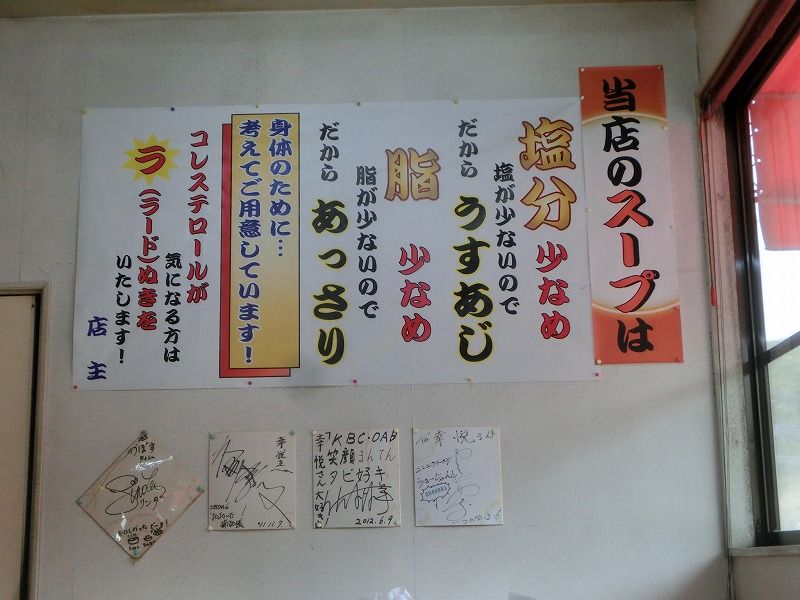 当店のスープは
塩分 少なめ
塩が少ないので
だから うすあじ
脂 少なめ
脂が少ないので
だから あっさり
身体のために…
考えてご用意しています!
コレステロールが
気になる方は
ラ(ラード)ぬきを
いたします!
店主
つぼす
リンダ
幸悦さん
'11.11.9
KBC・OAB
「笑顔まんてん
タビ好キ
幸悦さん大好き
2012.6.9
to 幸悦さん